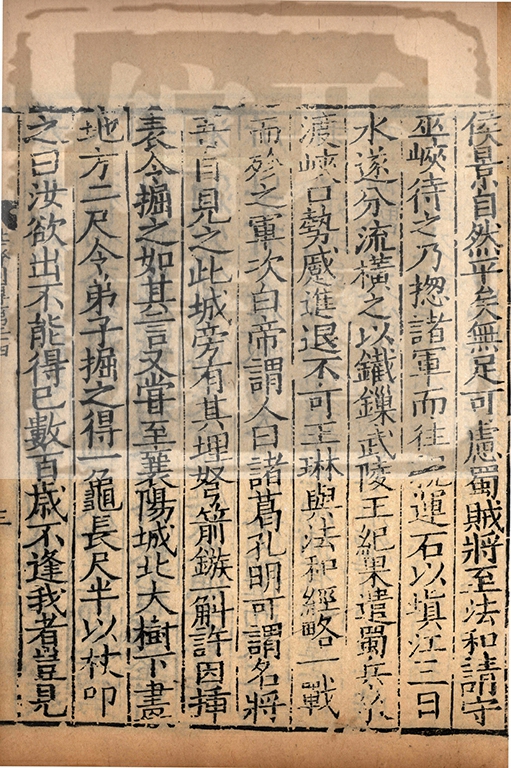 侯景自然平矣無足可慮蜀賊將至法和請守
巫峽待之乃揔諸軍而往親運石以填江三日
水遂分流橫之以鐵鏁武陵王紀果遣蜀兵來
渡峽口勢蹙進退不可王琳與法和經略一戰
而殄之軍次白帝謂人曰諸葛孔明可謂名將
吾自見之此城旁有其埋弩箭鏃一斛許因插
表令掘之如其言又嘗至襄陽城北大樹下畫
地方二尺令弟子掘之得一龜長尺半以杖叩
之曰汝欲出不能得已數百歲不逢我者豈見